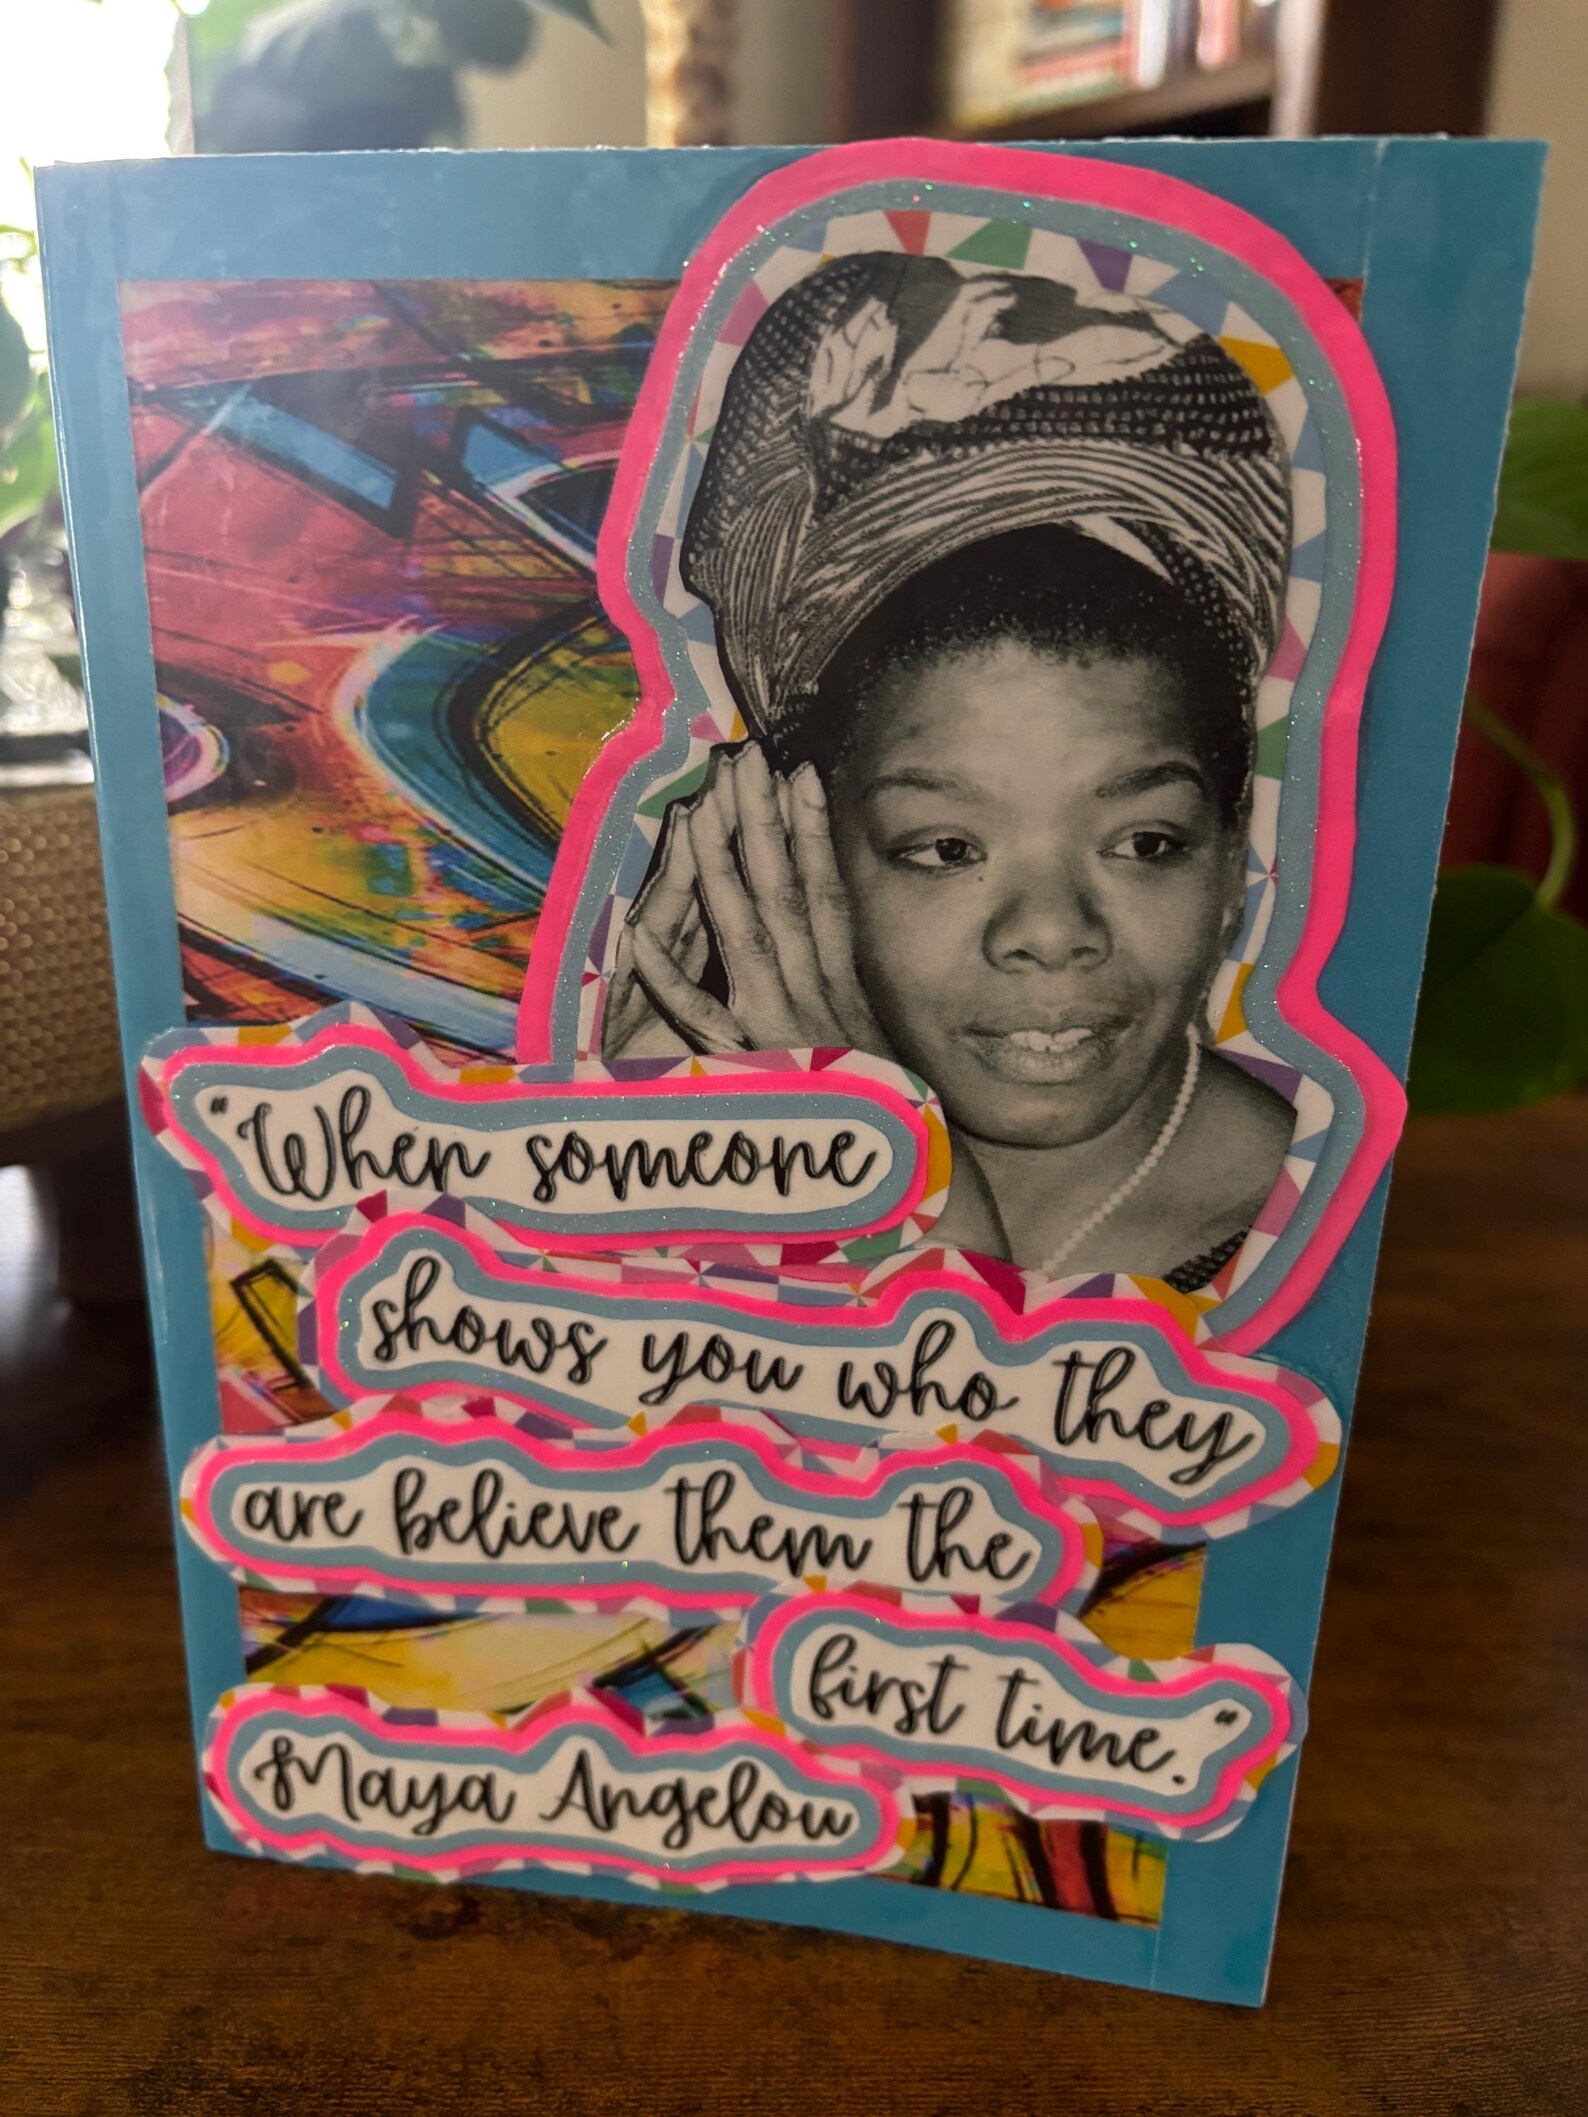 “When someone
shows you who they
are believe them the
first time.“
Maya Angelou